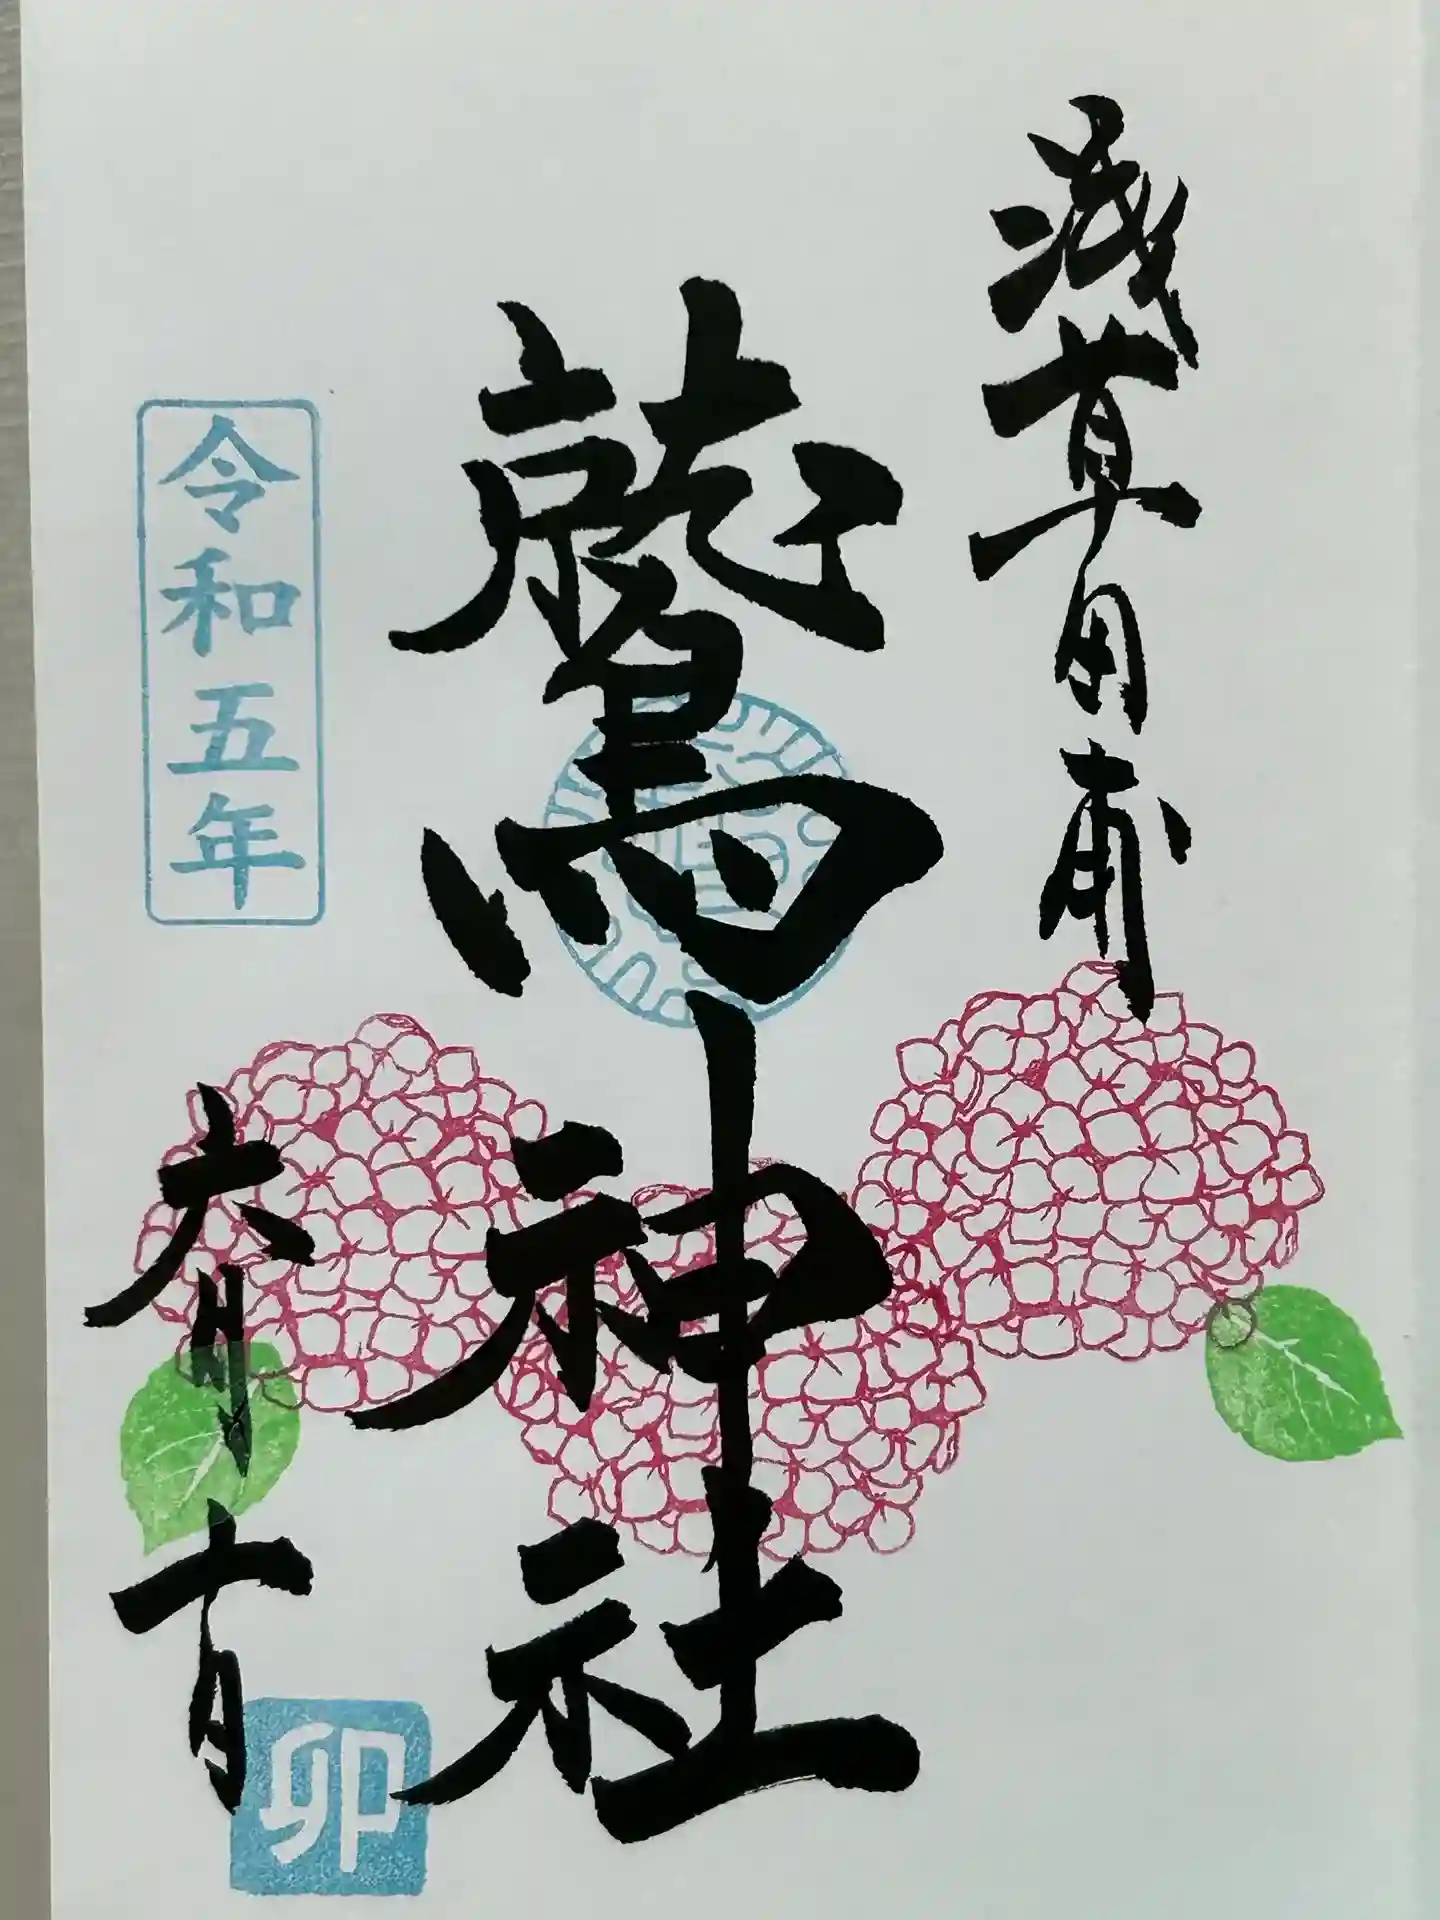 浅草田甫
鷲神社
令和五年
六月十日
卯